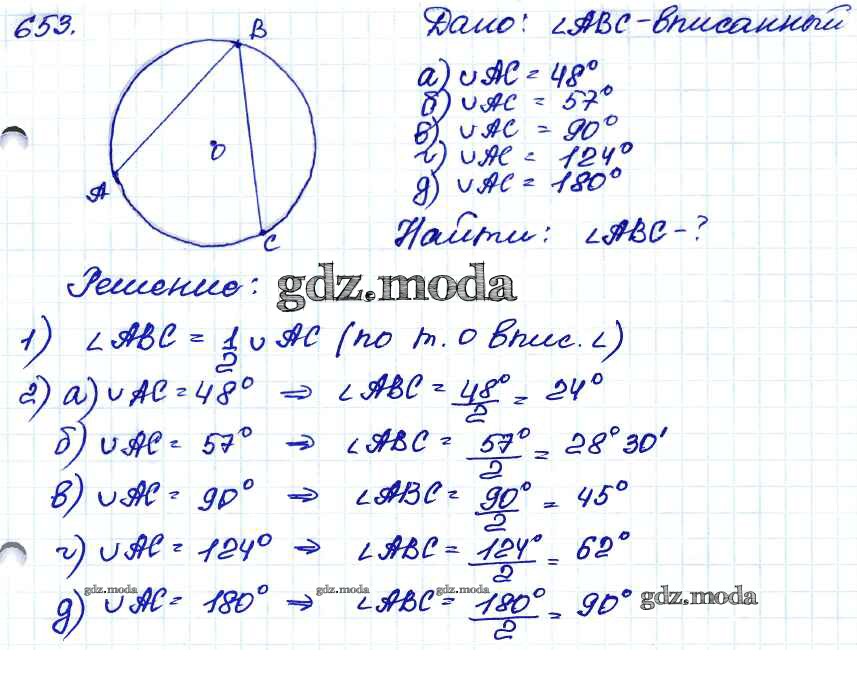 653.
B
O
A
C
Дано: ∠ABC - вписанный
а) ∪AC = 48°
б) ∪AC = 57°
в) ∪AC = 90°
г) ∪AC = 124°
д) ∪AC = 180°
Найти: ∠ABC - ?
Решение:
gdz.moda
1) ∠ABC = 1/2 ∪ AC (по т. о впис. ∠)
2) а) ∪AC = 48° ⇒ ∠ABC = 48°/2 = 24°
б) ∪AC = 57° ⇒ ∠ABC = 57°/2 = 28°30'
в) ∪AC = 90° ⇒ ∠ABC = 90°/2 = 45°
г) ∪AC = 124° ⇒ ∠ABC = 124°/2 = 62°
gdz.moda gdz.moda gdz.moda
д) ∪AC = 180° ⇒ ∠ABC = 180°/2 = 90°